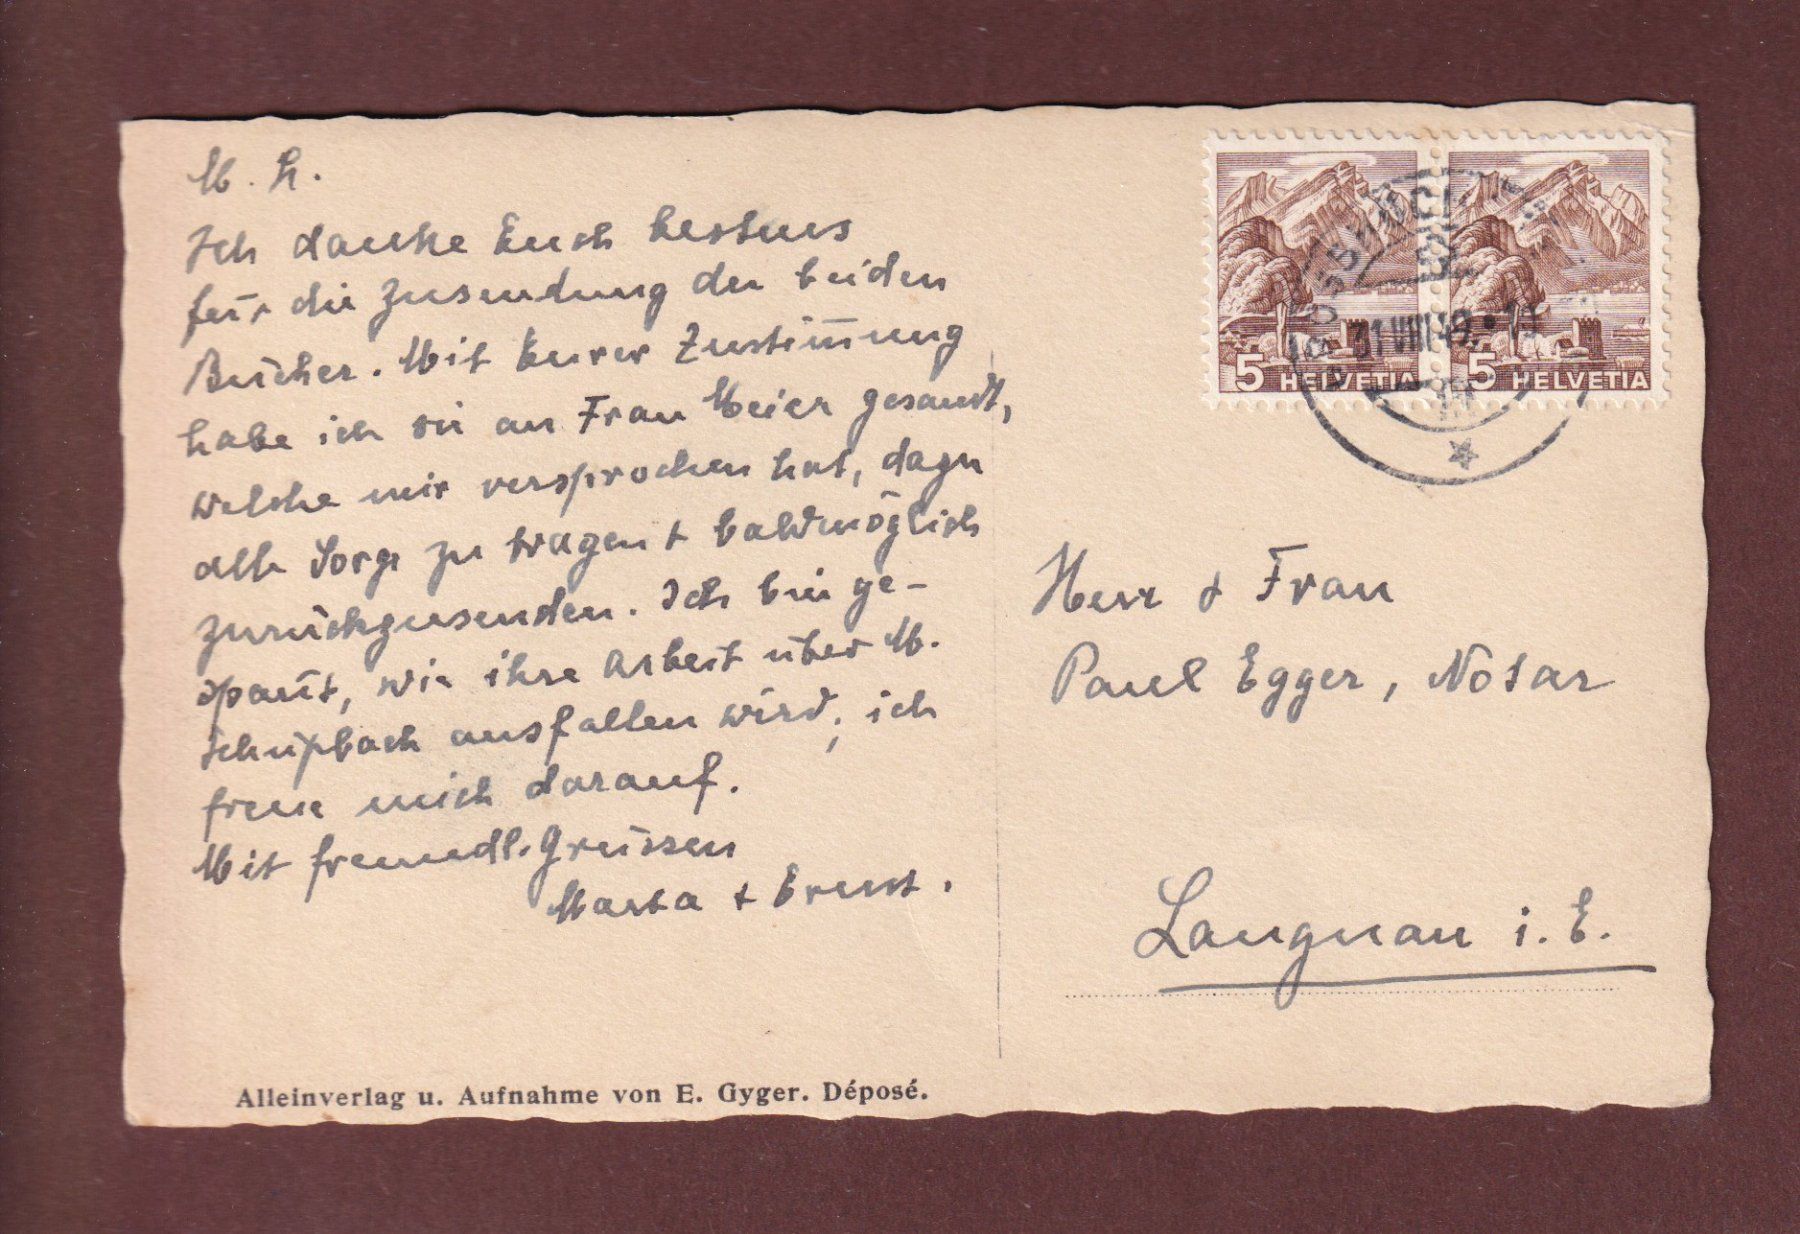 M. L.
Ich danke Euch bestens
für die Zusendung der beiden
Bücher. Mit Eurer Zustim̄ung
habe ich sie an Frau Meier gesandt,
welche mir versprochen hat, dazu
alle Sorge zu tragen + baldmöglich
zurückzusenden. Ich bin ge-
spannt, wie ihre Arbeit über M.
Schüpbach ausfallen wird, ich
freue mich darauf.
Mit freundl. Grüssen
Marta + Ernst.
Alleinverlag u. Aufnahme von E. Gyger. Déposé.
5 HELVETIA
5 HELVETIA
31 VIII 49
Herr & Frau
Paul Egger, Notar
Langnau i. E.